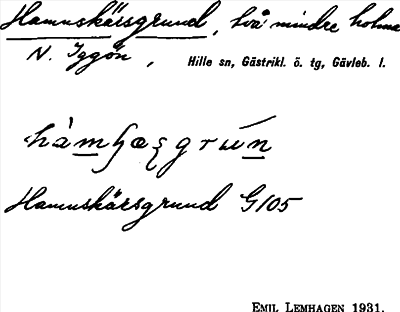 Hamnskärsgrund, två mindre holma
N. Iggön, Hille sn, Gästrikl. ö. tg, Gävleb. l.
Hamnskärsgrund G105
EMIL LEMHAGEN 1931.